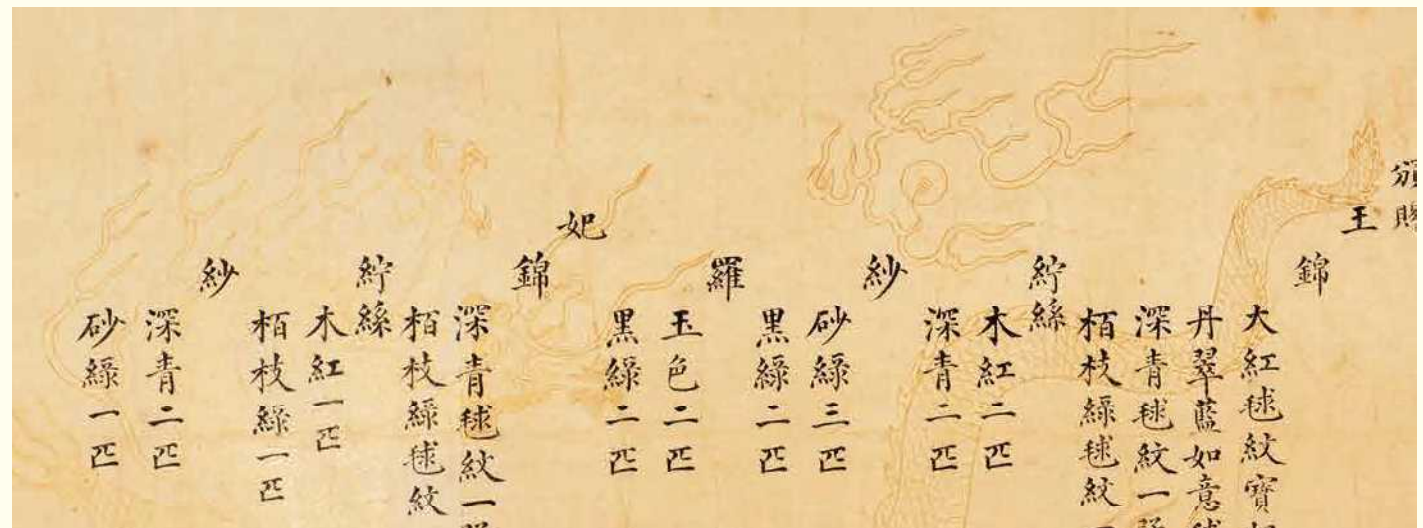 頒賜
王
錦
大紅毬紋寶
丹翠藍如意
深青毬紋一
栢枝緑毬紋
紵絲
木紅二匹
深青二匹
紗
砂緑三匹
黒緑二匹
羅
玉色二匹
黒緑二匹
妃
錦
深青毬紋一
栢枝緑毬紋
紵絲
木紅一匹
栢枝緑一匹
紗
深青二匹
砂緑一匹